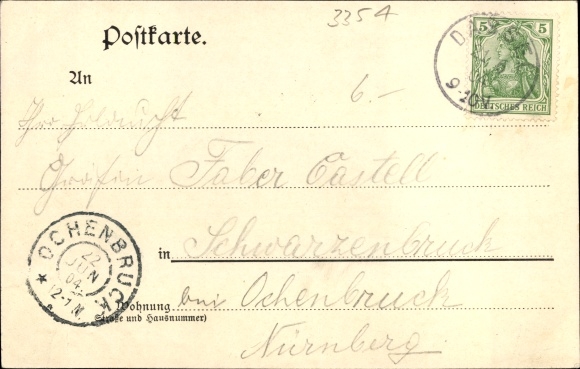 3354
Postkarte.
5 5
DEUTSCHES REICH
An
6.-
Ihre Erlaucht
Gräfin Faber Castell
in Schwarzenbruck
bei Ochenbruck
Wohnung
(Straße und Hausnummer)
Nürnberg
OCHENBRUCK
22
JUN
04
12-1N.